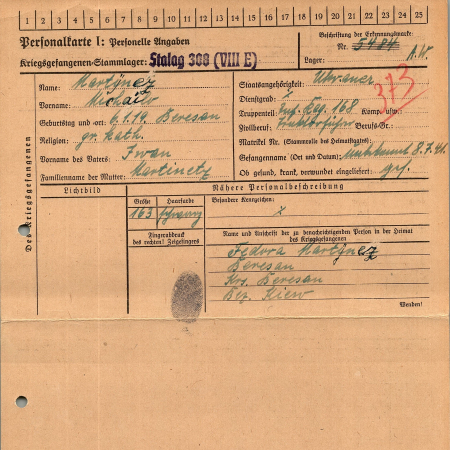 1 2 3 4 5 6 7 8 9 10 11 12 13 14 15 16 17 18 19 20 21 22 23 24 25
Personalkarte I: Personelle Angaben
Kriegsgefangenen-Stammlager: Stalag 308 (VIII E)
Beschriftung der Erkennungsmarke
Nr. 5484
Lager: A.W.
313
Des Kriegsgefangenen
Name: Martynez
Vorname: Michailo
Geburtstag und -ort: 6.1.14 Beresan
Religion: gr. kath.
Vorname des Vaters: Iwan
Familienname der Mutter: Martinetz
Staatsangehörigkeit: Ukrainer
Dienstgrad: x
Truppenteil: Inf. Reg. 168 Komp. usw.:
Zivilberuf: Traktorführer Berufs-Gr.:
Matrikel Nr. (Stammrolle des Heimatstaates):
Gefangennahme (Ort und Datum): 8.7.41.
Ob gesund, krank, verwundet eingeliefert: gs.
Lichtbild
Nähere Personalbeschreibung
Größe Haarfarbe
163 schwarz
Besondere Kennzeichen:
x
Fingerabdruck
des rechten! Zeigefingers
Name und Anschrift der zu benachrichtigenden Person in der Heimat
des Kriegsgefangenen
Fedora Martynez
Beresan
Krs. Beresan
Bez. Kiew
Wenden!